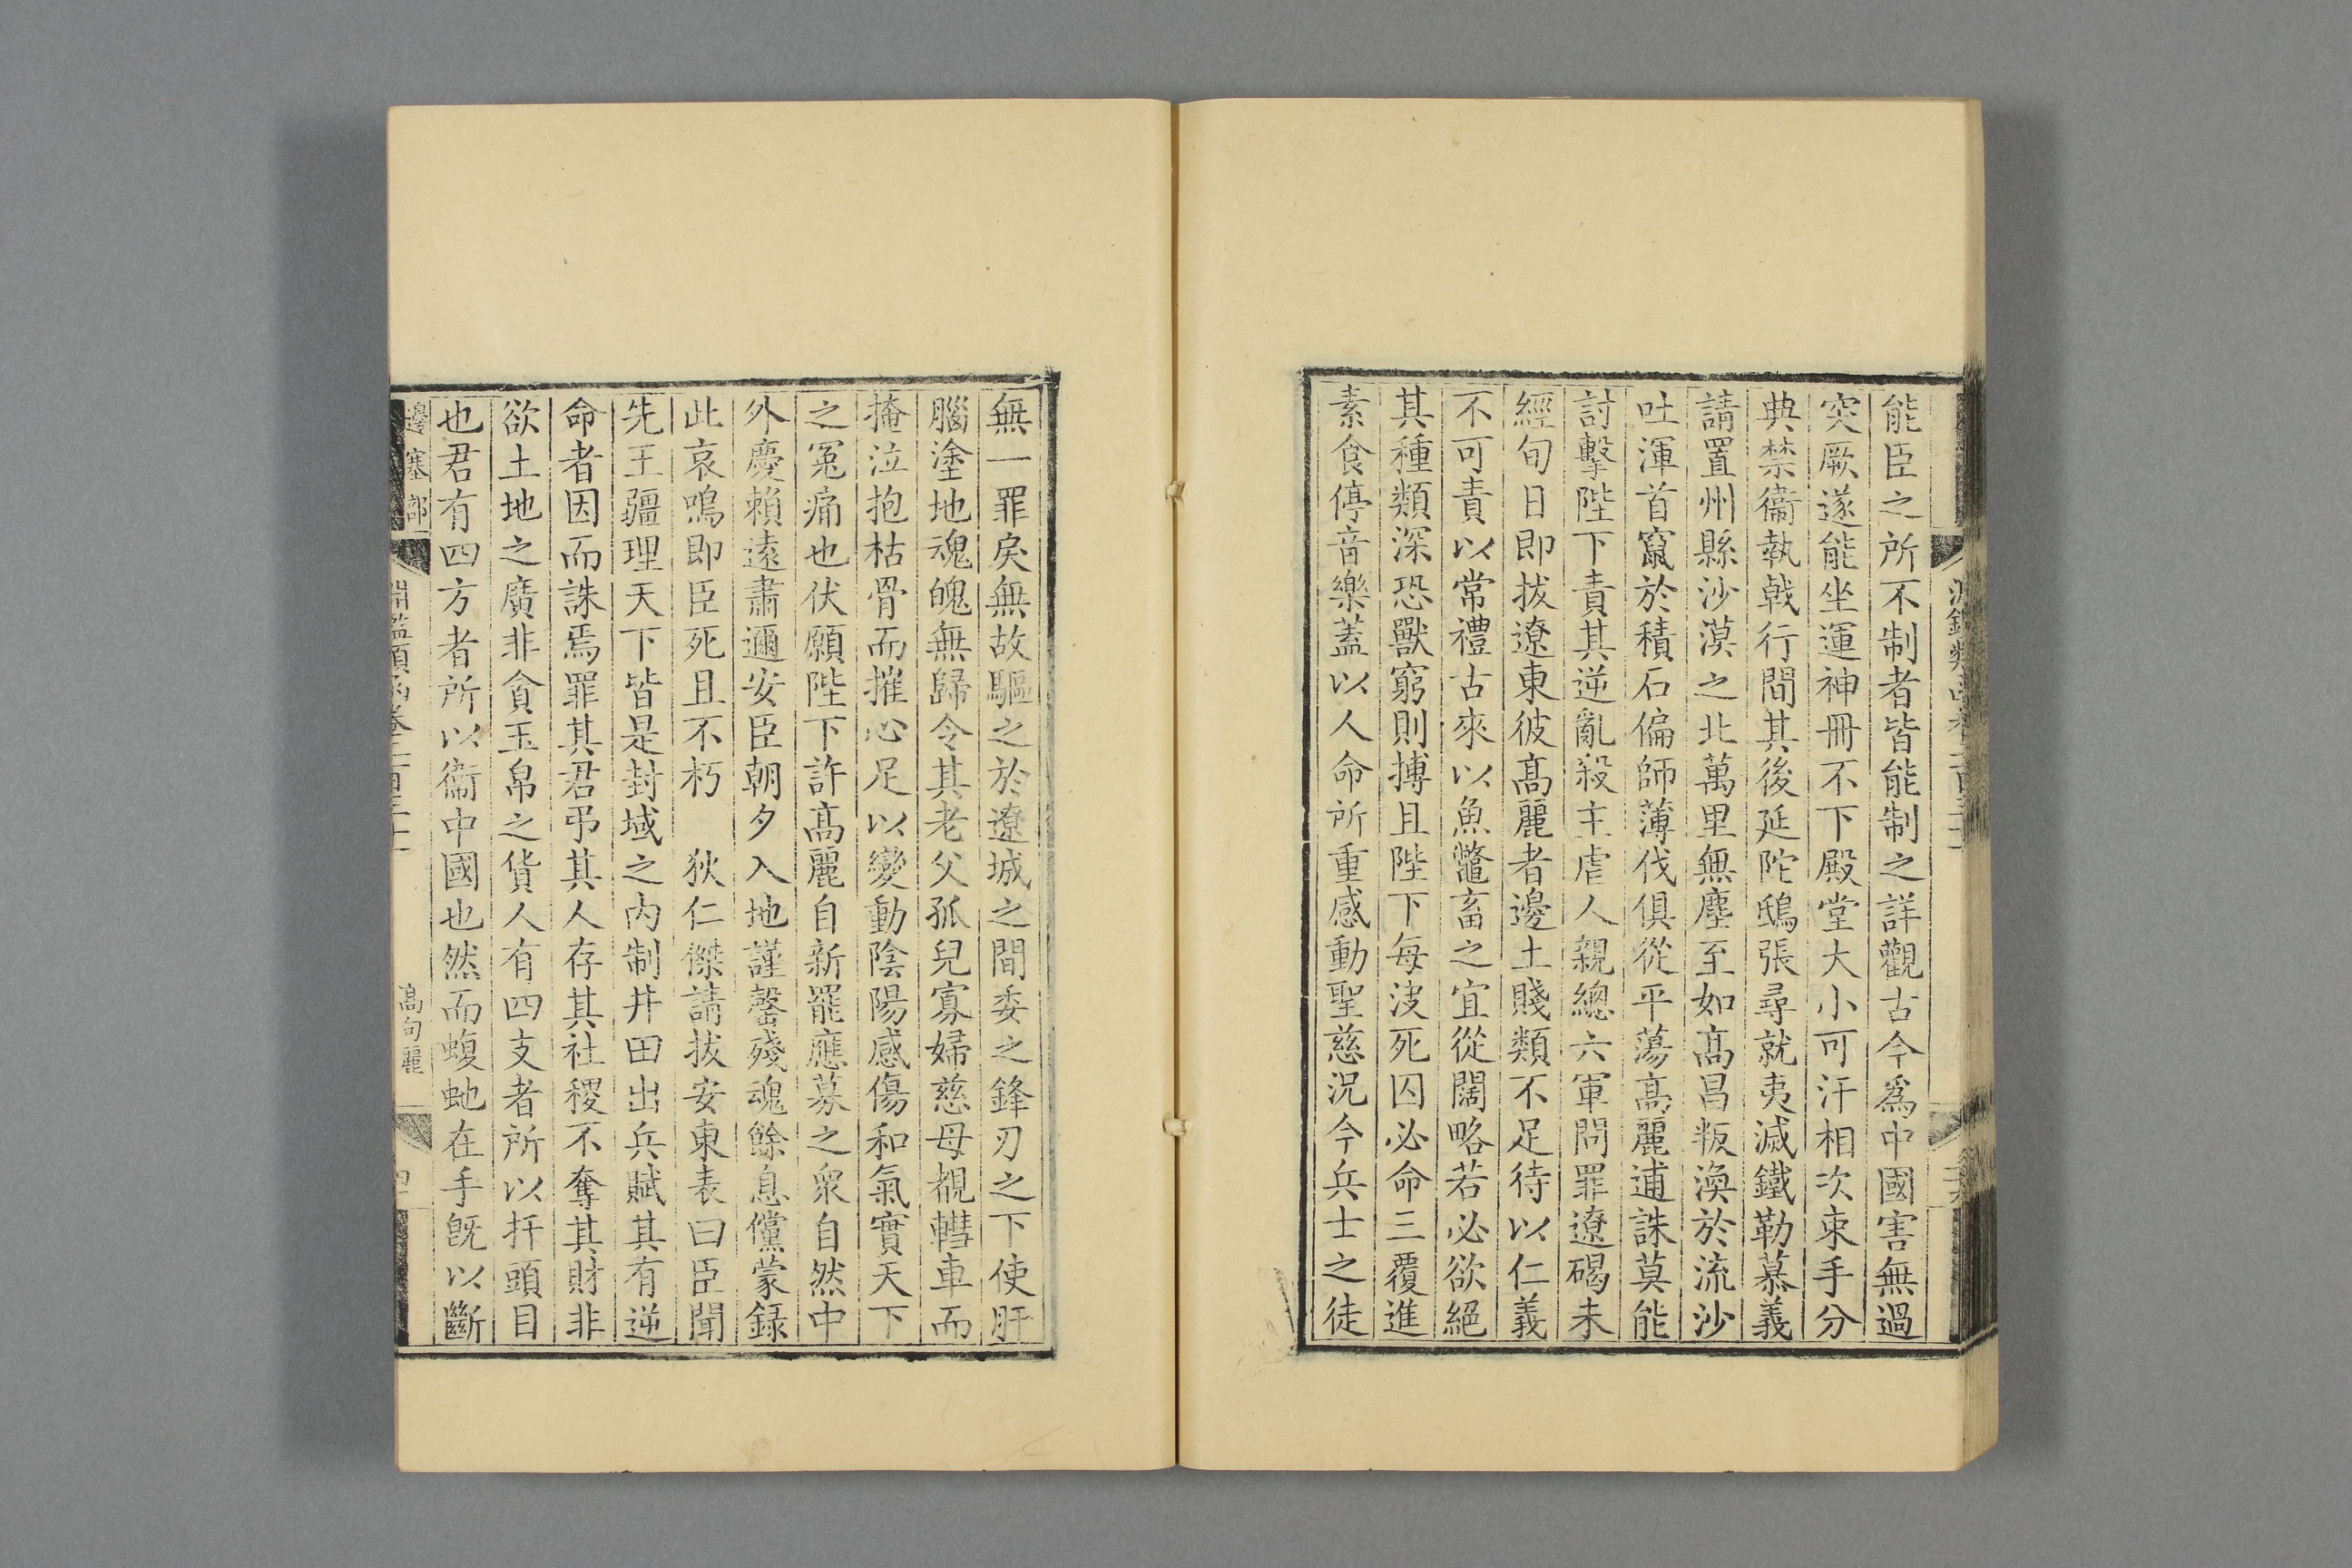 能臣之所不制者皆能制之詳觀古今爲中國害無過
突厥遂能坐運神冊不下殿堂大小可汗相次束手分
典禁衞執戟行間其後延陀鴟張尋就夷滅鐵勒慕義
請置州縣沙漠之北萬里無塵至如髙昌叛渙於流沙
吐渾首竄於積石偏師薄伐俱從平蕩髙麗逋誅莫能
討擊陛下責其逆亂殺主虐人親總六軍問罪遼碣未
經旬日即拔遼東彼髙麗者邊土賤類不足待以仁義
不可責以常禮古來以魚鼈畜之宜從闊略若必欲絕
其種類深恐獸窮則搏且陛下每決死囚必命三覆進
素食停音樂蓋以人命所重感動聖慈況今兵士之徒
無一罪戾無故驅之於遼城之間委之鋒刃之下使肝
腦塗地魂魄無歸令其老父孤兒寡婦慈母覩轊車而
掩泣抱枯骨而摧心足以變動陰陽感傷和氣實天下
之冤痛也伏願陛下許髙麗自新罷應募之衆自然中
外慶賴遠肅邇安臣朝夕入地謹罄殘魂餘息儻蒙録
此哀鳴即臣死且不朽　狄仁傑請拔安東表曰臣聞
先王疆理天下皆是封域之内制井田出兵賦其有逆
命者因而誅焉罪其君弔其人存其社稷不奪其財非
欲土地之廣非貪玉帛之貨人有四支者所以扞頭目
也君有四方者所以衞中國也然而蝮虵在手旣以斷
邊塞部
髙句麗